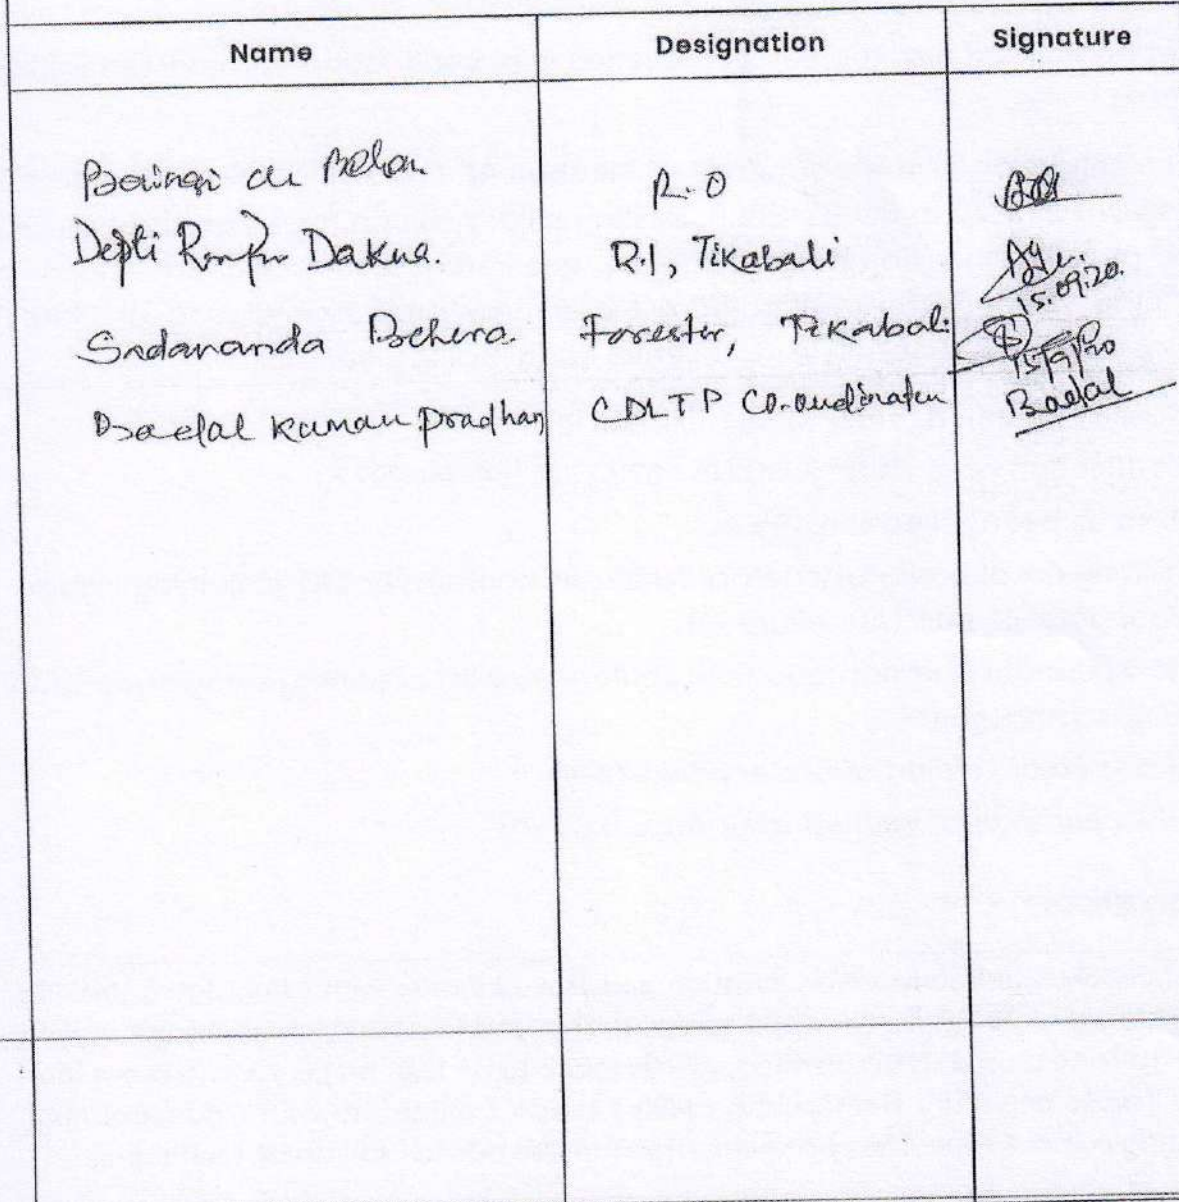 Name Designation Signature
R.O
Depti Dakua. R.I, Tikabali 15.09.20.
Sadananda Behera. Forester, Tikabali 15/9/20
Badal Kumar Pradhan CDLTP Co-ordinator Badal